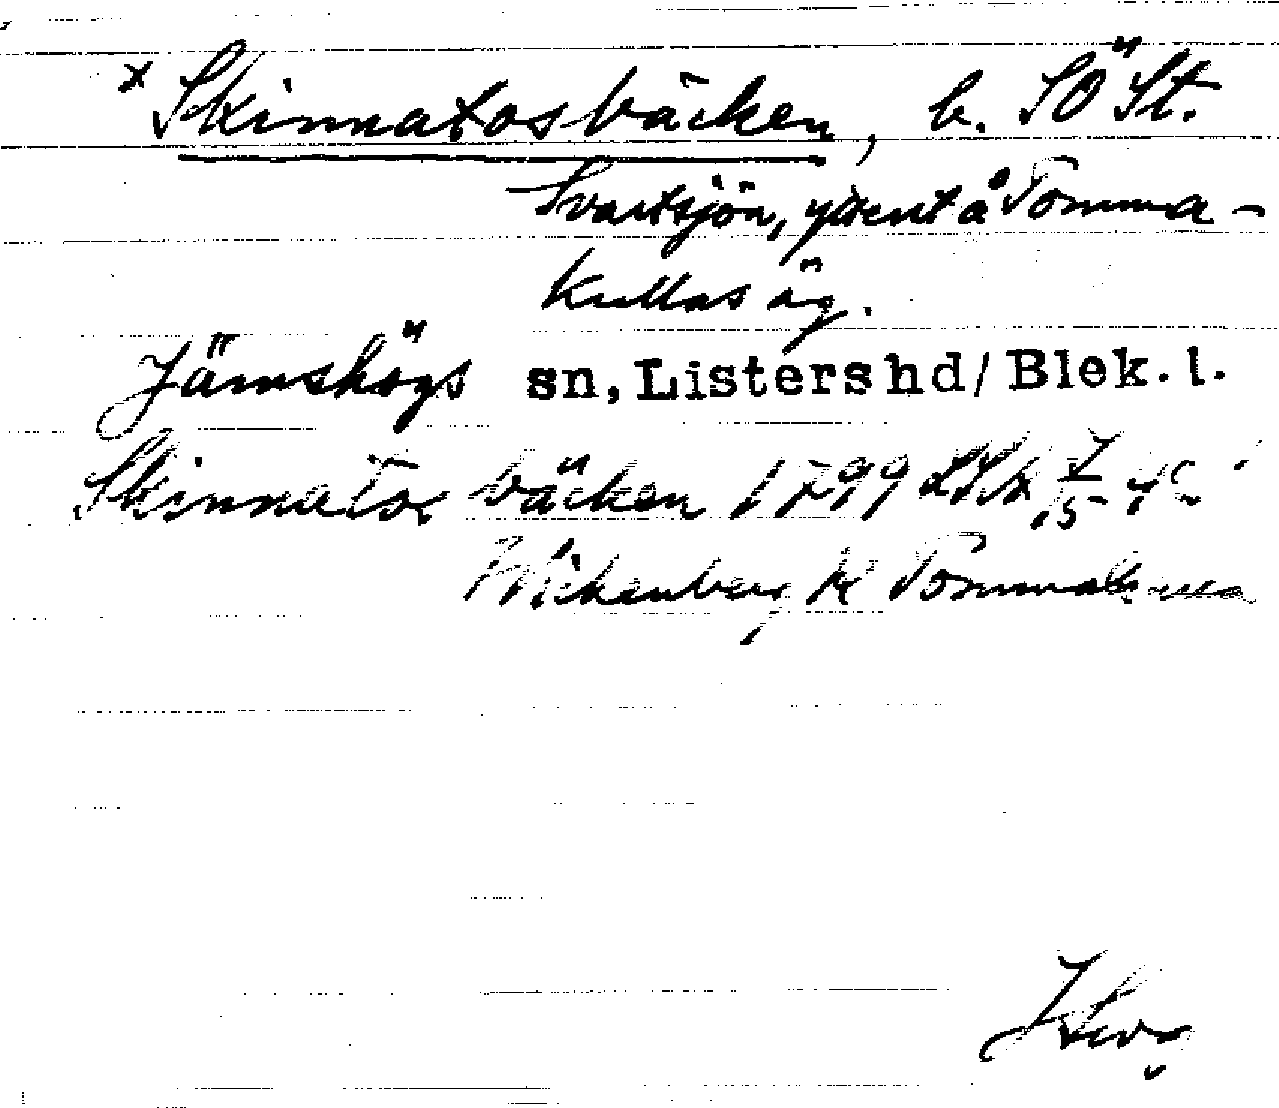 x Skinnatosbäcken, b. SÖ St.
Svartsjön, ytterst å Tomma-
kullas äg.
Jämshögs sn, Listers hd/Blek. l.
Skinnatos bäcken 1799 LSk
Wickenberg K Tommakulla